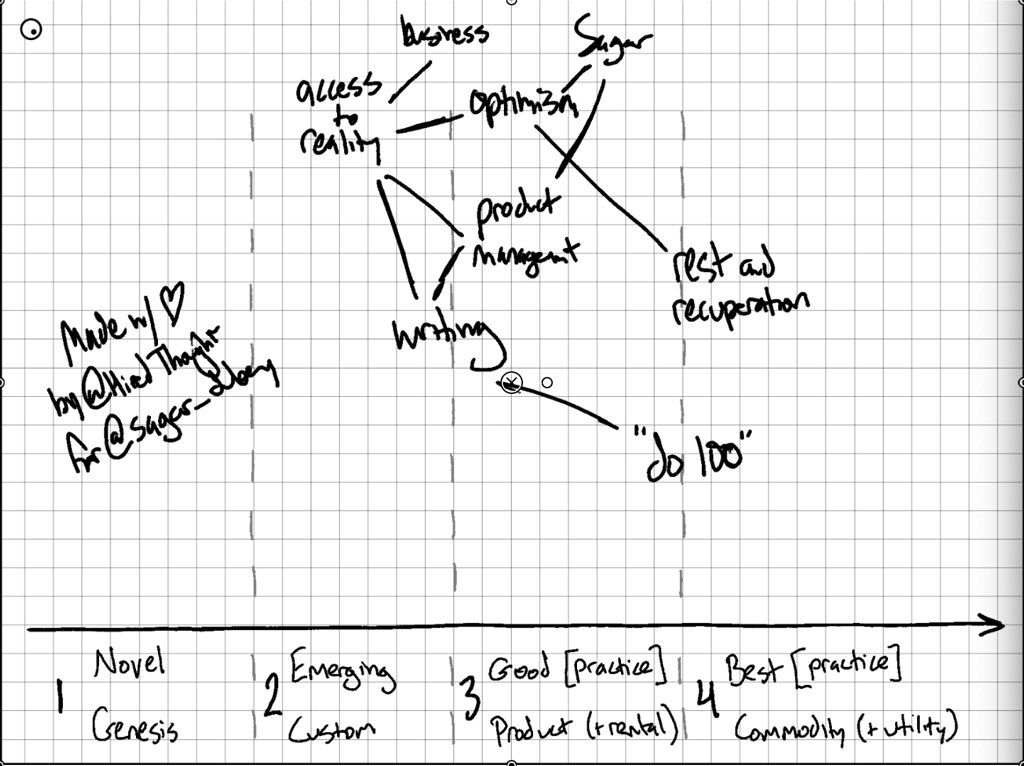 business
Sagar
access
to
reality
optimism
product
management
rest and
recuperation
writing
Made w/ ♡
by @HiredThought
for @sagar_
"do 100"
1 Novel
Genesis
2 Emerging
Custom
3 Good [practice]
Product (+rental)
4 Best [practice]
Commodity (+utility)